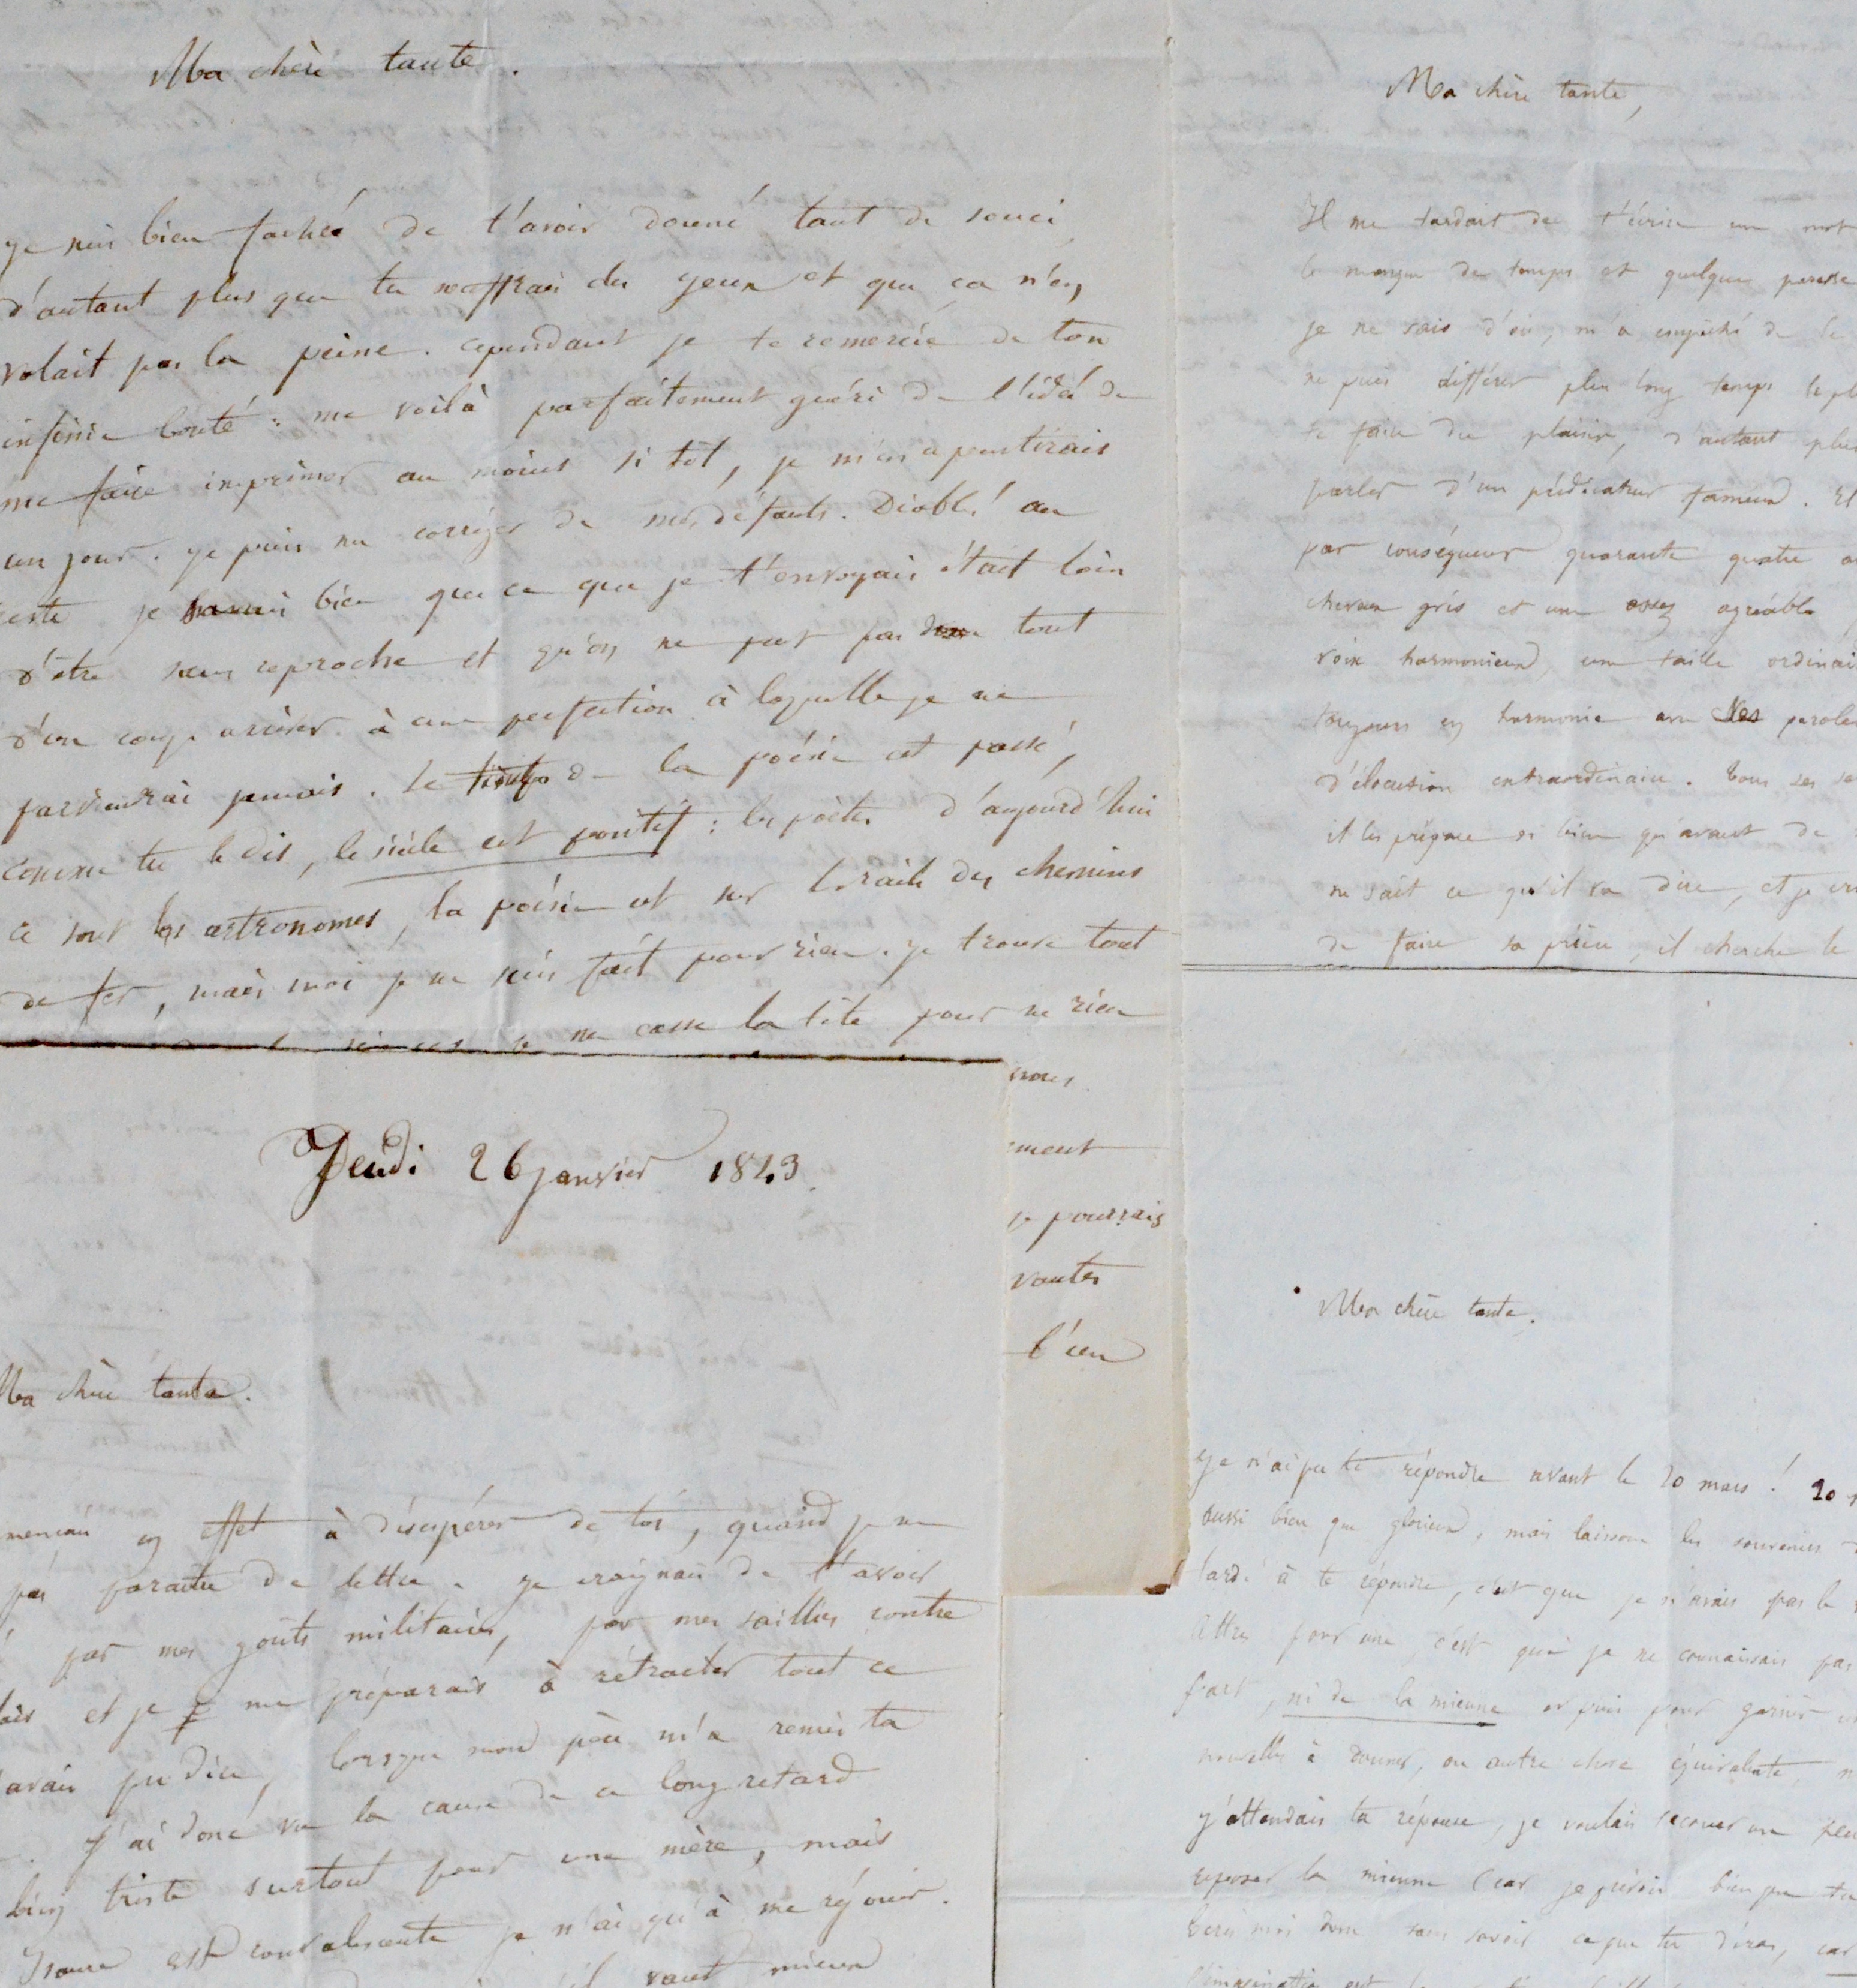 Ma chère tante.
je suis bien faché de t'avoir donné tant de souci
d'autant plus que tu souffrais des yeux et que ça n'en
valait pas la peine. cependant je te remercie de ton
infinie bonté : me voilà parfaitement guéri de l'idée de
me faire imprimer au moins si tôt, je m'en repentirais
un jour. je puis me corriger de mes défauts. Diable! au
reste je savais bien que ce que je t'envoyais était loin
d'être sans reproche et qu'on ne peut pas tout
d'un coup arriver à une perfection à laquelle je ne
parviendrai jamais. le temps de la poésie est passé,
comme tu le dis, le siècle est positif : les poètes d'aujourd'hui
ce sont les astronomes, la poésie est sur les rails des chemins
de fer, mais moi je ne suis fait pour rien. je trouve tout
je me casse la tête pour ne rien
nous
ement
je pourrais
vantes
l'un
Jeudi 26 janvier 1843.
Ma chère tante.
en effet à désespérer de toi, quand je ne
pas paraitre de lettre. je craignais de t'avoir
par mes goûts militaires, par mes saillies contre
et je me préparais à rétracter tout ce
avais pu dire, lorsque mon père m'a remis ta
J'ai donc vu la cause de ce long retard
bien triste surtout pour une mère, mais
est convalescente je n'ai qu'à me réjouir.
vaut mieux
Ma chère tante,
Il me tardait de t'écrire un mot
le manque de temps et quelque paresse
je ne sais d'où, m'a empêché de le
ne puis différer plus long temps le pl
te faire du plaisir, d'autant plus
parler d'un prédicateur fameux. Il
par conséquent quarante quatre a
cheveux gris et une assez agréable
voix harmonieuse, une taille ordinai
toujours en harmonie avec ses parole
d'élocution extraordinaire. Tous ses se
il les prépare si bien qu'avant de
ne sait ce qu'il va dire, et je cr
de faire sa prière, il cherche le
Ma chère tante.
je n'ai pu te répondre avant le 20 mars! 20
aussi bien que glorieux, mais laissons les souvenirs d
tardé à te répondre, c'est que je n'avais pas le
lettre pour une, c'est que je ne connaissais pas
part, ni de la mienne et puis pour garnir u
nouvelles à donner, ou autre chose équivalente, n
j'attendais ta réponse, je voulais secouer un peu
reposer la mienne (car je prévois bien que tu
Ecris moi donc sans savoir ce que tu diras, car
l'imagination est